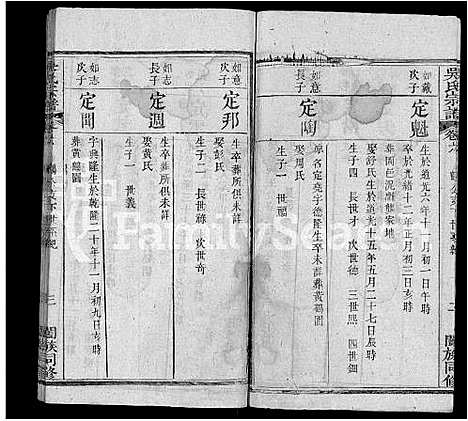 吳氏宗譜
卷六
如戴
次子
定魁
生於道光六年十一月初一日午時
卒於光緒十二年正月初三日亥時
葬園邑泥磨熊家地
娶舒氏生於道光十五年五月二十七日辰時
生子四 長世才 次世德 三世熙 四世鈿
如意
長子
定陶
原名定堯字德隆生卒未詳葬黃鶴園
娶周氏
生子一 世福
如意
次子
定邦
生卒葬所俱未詳
娶彭氏
生子二 長世祿 次世奇
如志
長子
定週
生卒葬所俱未詳
娶黃氏
生子一 世義
如志
次子
定聞
字典隆生於乾隆二十年十一月初九日亥時
葬黃鶴園
三
闔族同修
FamilySearch